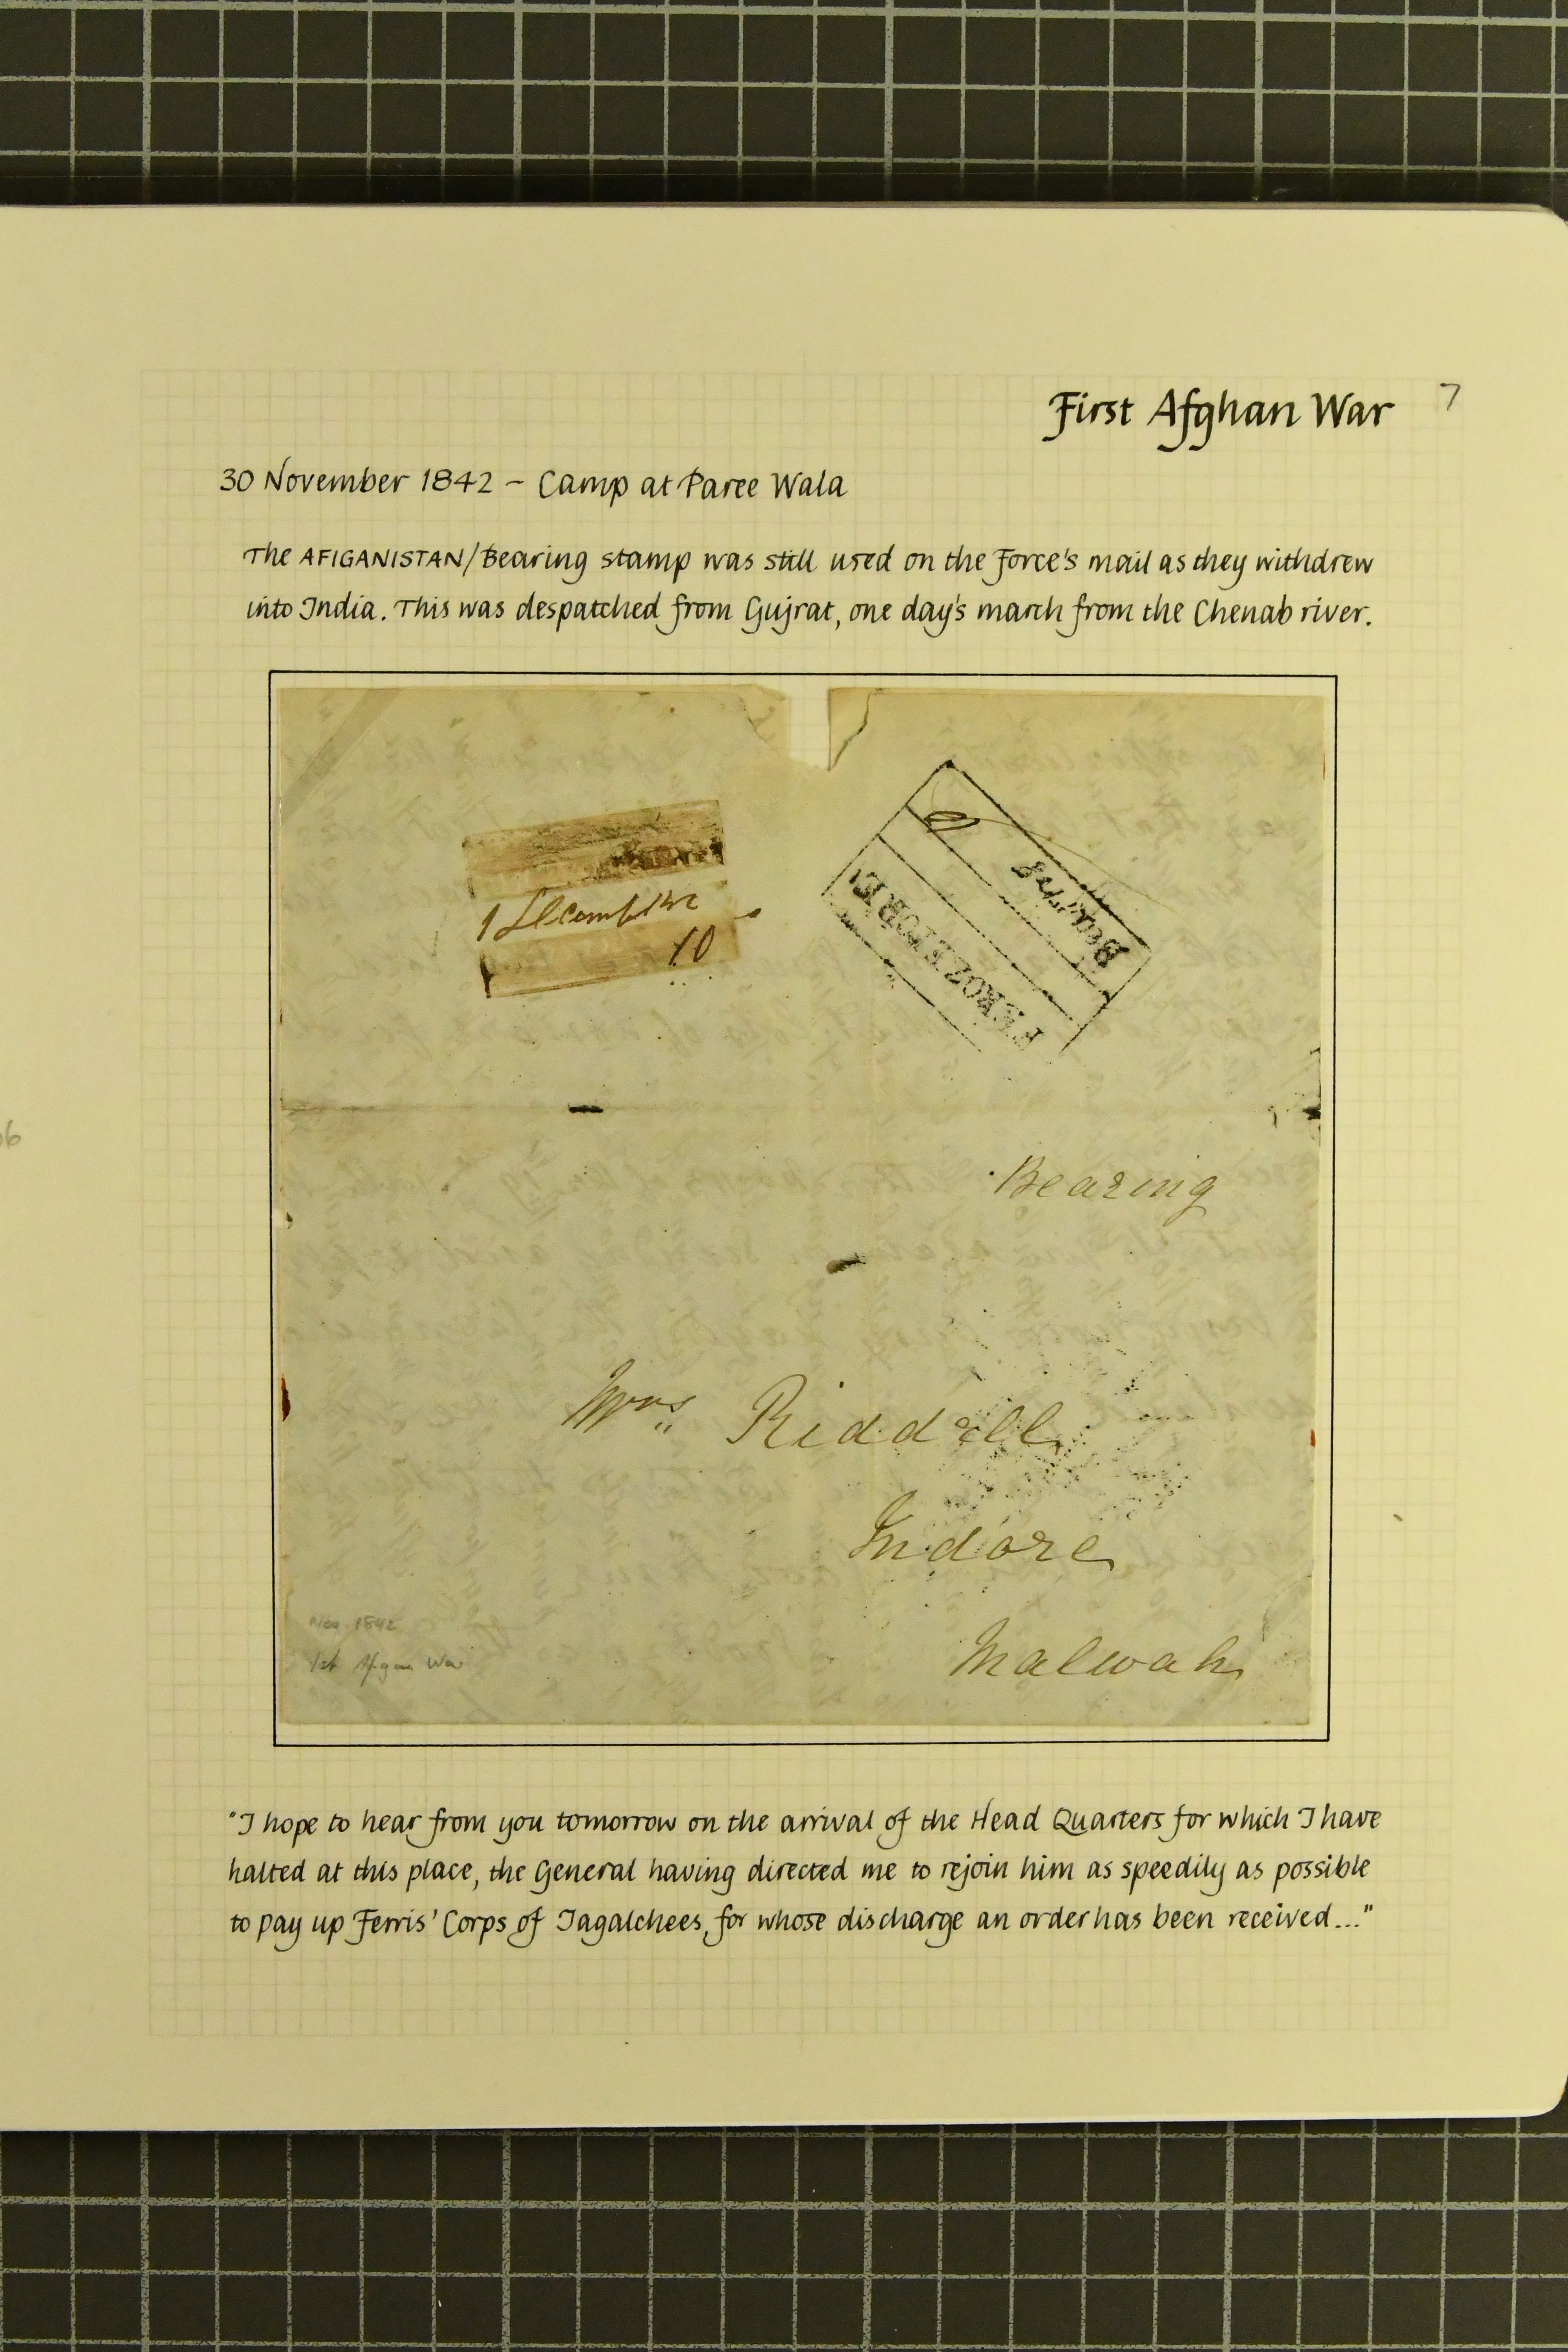 First Afghan War
7
30 November 1842 - Camp at Paree Wala
The AFIGANISTAN/Bearing stamp was still used on the Force's mail as they withdrew
into India. This was despatched from Gujrat, one day's march from the Chenab river.
1
10
Bearing
FEROZEPORE
Bearing
Mrs Riddell
Indore
Malwah
Nov 1842
1st Afgan War
"I hope to hear from you tomorrow on the arrival of the Head Quarters for which I have
halted at this place, the General having directed me to rejoin him as speedily as possible
to pay up Ferris' Corps of Jagalchees, for whose discharge an order has been received..."